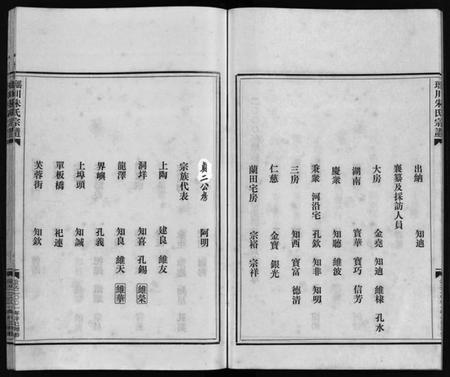 珊川朱氏宗譜
出納　知迪
襄纂及採訪人員
大房　金堯　知迪　維棣　孔水
湖南　寶華　寶巧　信芳
慶衆　知聽　維波
秉衆　河沿宅　孔欽　知非　知明
三房　知西　寶富　德清
仁慈　金寶　銀光
蘭田宅房　宗裕　宗祥
貞二公房　阿明
宗族代表
上陶　建良　維友
洞垟　知喜　孔錫　維榮
龍潭　知良　維天　維華
界嶼　孔義
上埠頭　知誠
單板橋　祀連
芙蓉街　知欽
川朱氏宗譜